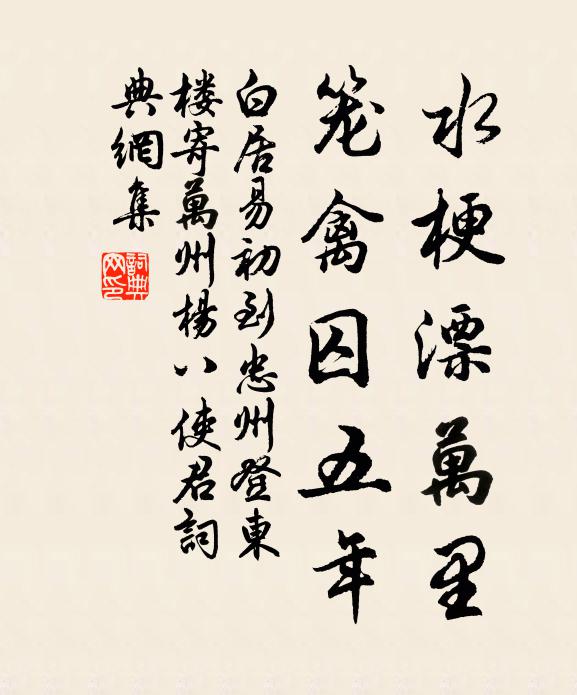 水梗漂萬里
笼禽囚五年
白居易初到忠州登東
楼寄萬州楊八使君詞
典網集
詞典
网印